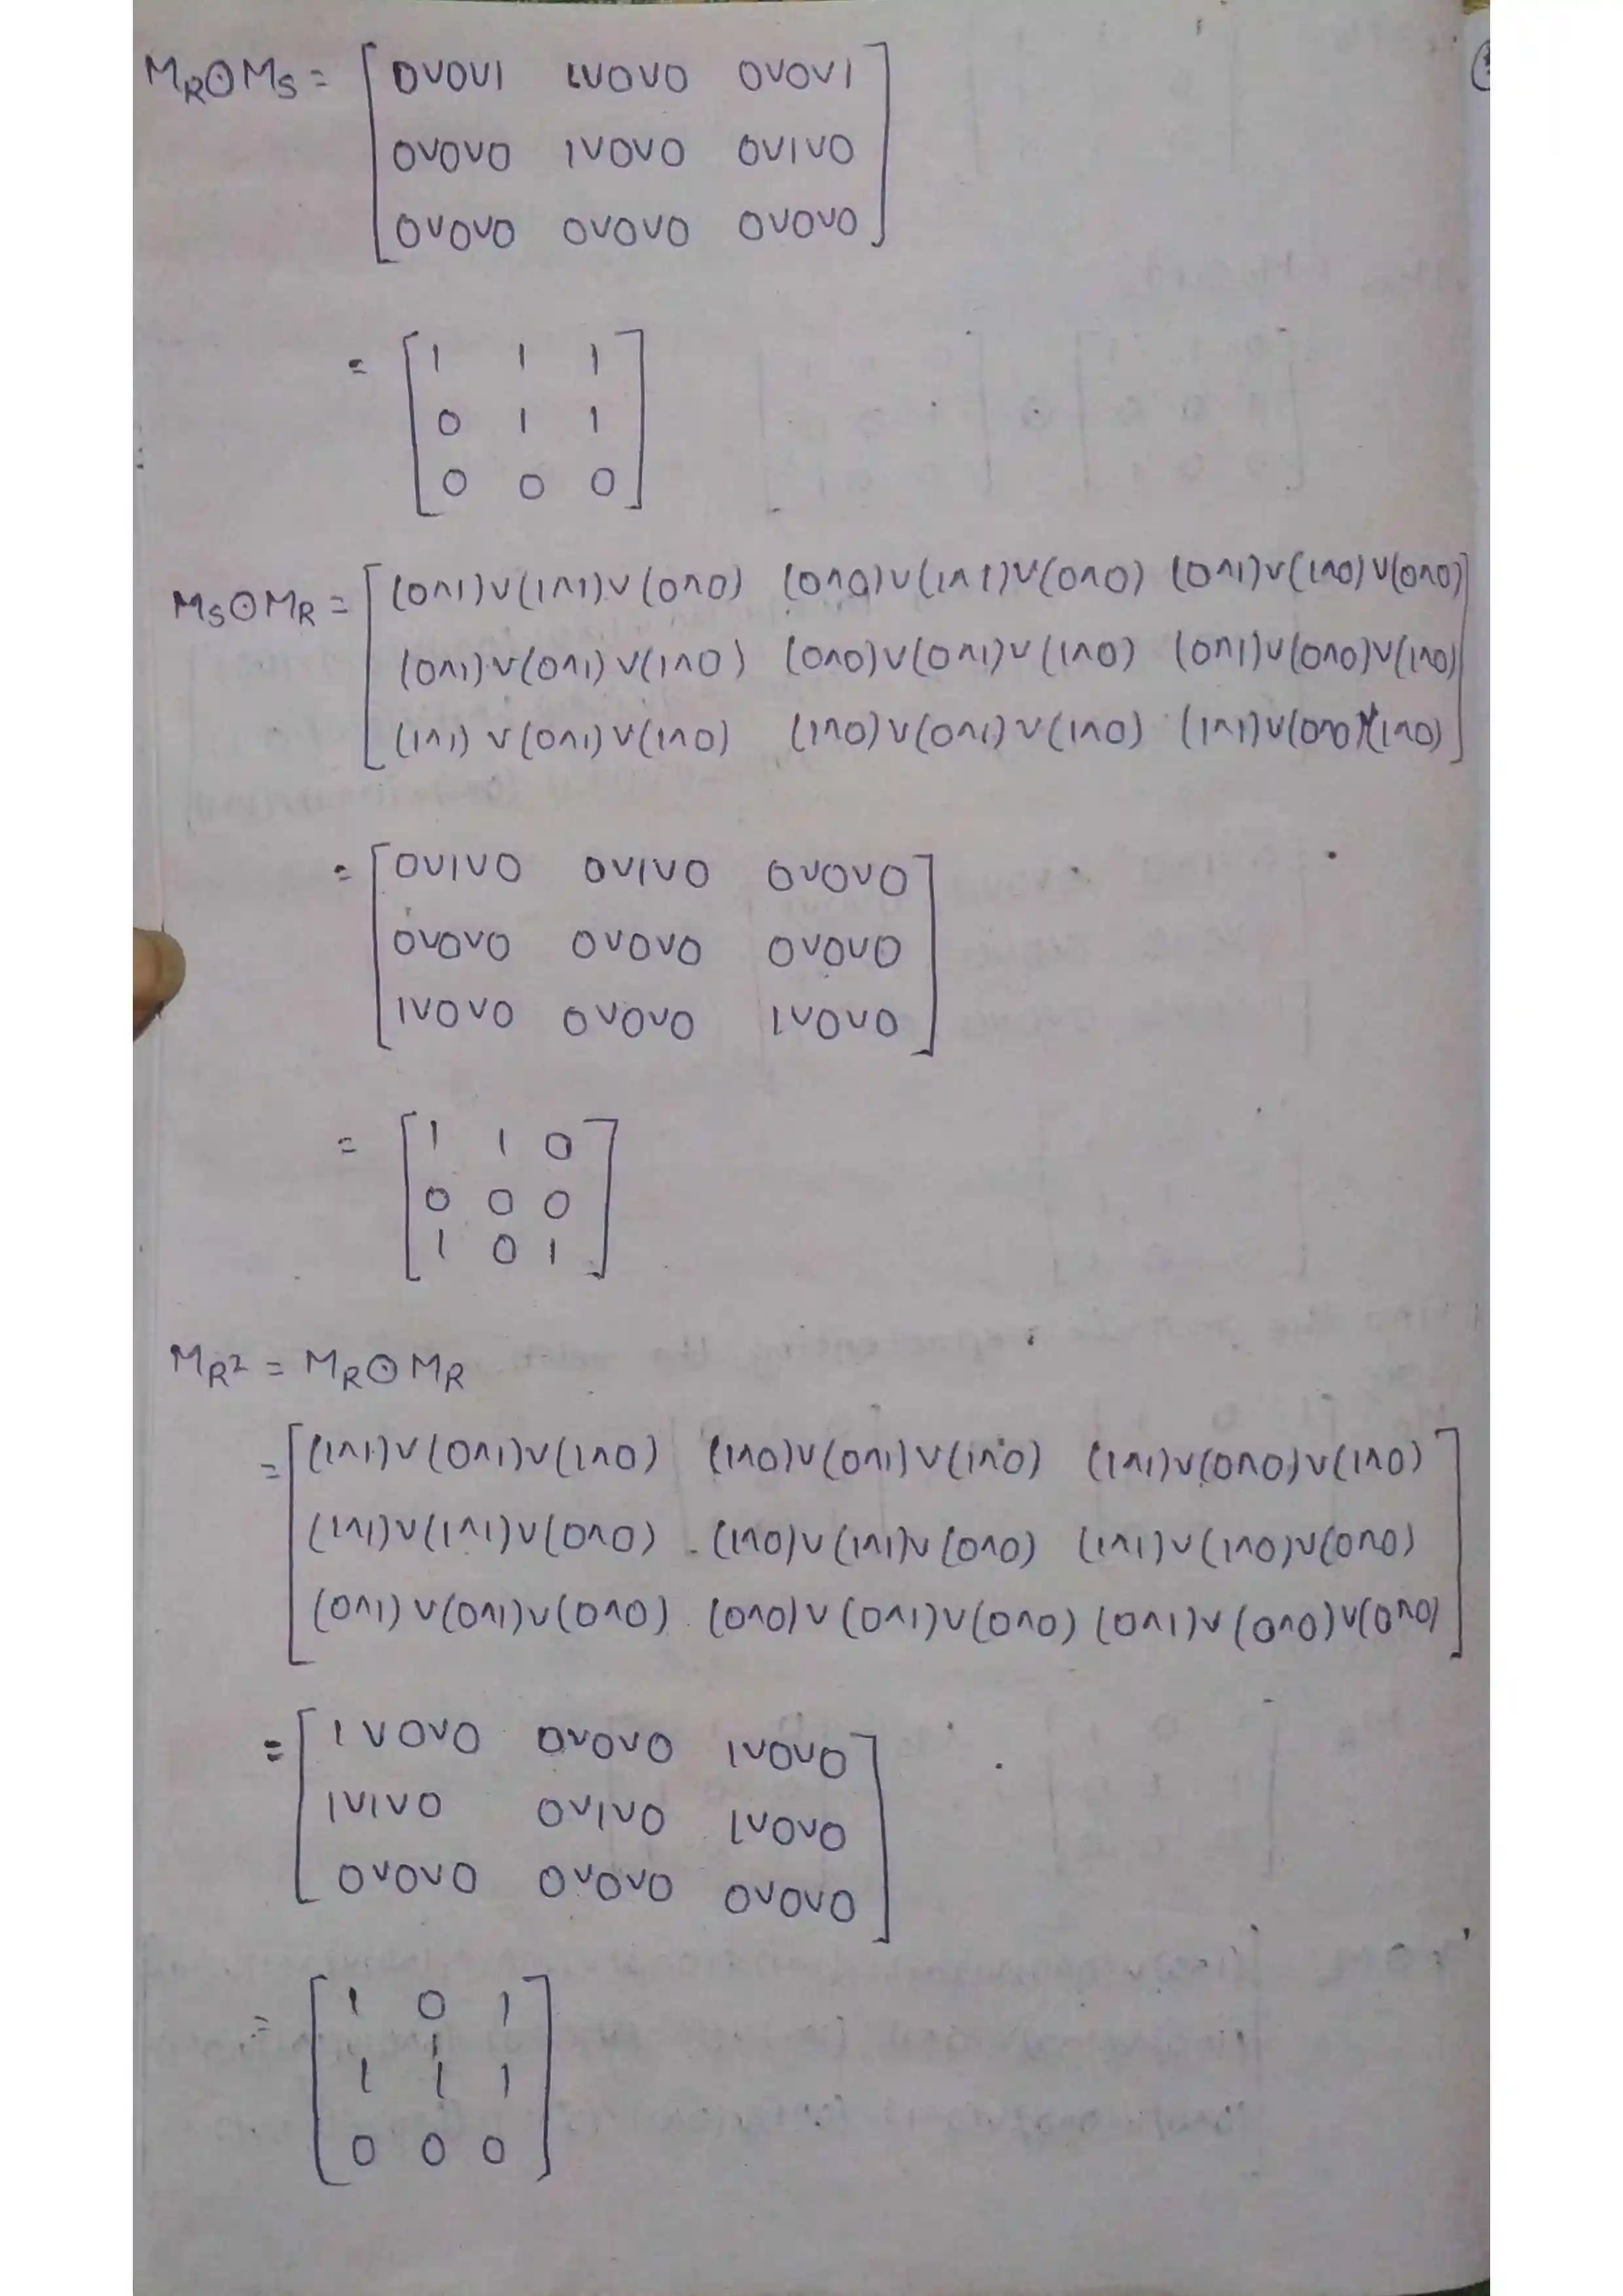 MR⊙MS = [ 0∨0∨1 1∨0∨0 0∨0∨1
0∨0∨0 1∨0∨0 0∨1∨0
0∨0∨0 0∨0∨0 0∨0∨0 ]
= [ 1 1 1
0 1 1
0 0 0 ]
MS⊙MR = [ (0∧1)∨(1∧1)∨(0∧0) (0∧0)∨(1∧1)∨(0∧0) (0∧1)∨(1∧0)∨(0∧0)
(0∧1)∨(0∧1)∨(1∧0) (0∧0)∨(0∧1)∨(1∧0) (0∧1)∨(0∧0)∨(1∧0)
(1∧1)∨(0∧1)∨(1∧0) (1∧0)∨(0∧1)∨(1∧0) (1∧1)∨(0∧0)∨(1∧0) ]
= [ 0∨1∨0 0∨1∨0 0∨0∨0
0∨0∨0 0∨0∨0 0∨0∨0
1∨0∨0 0∨0∨0 1∨0∨0 ]
= [ 1 1 0
0 0 0
1 0 1 ]
MR² = MR⊙MR
= [ (1∧1)∨(0∧1)∨(1∧0) (1∧0)∨(0∧1)∨(1∧0) (1∧1)∨(0∧0)∨(1∧0)
(1∧1)∨(1∧1)∨(0∧0) (1∧0)∨(1∧1)∨(0∧0) (1∧1)∨(1∧0)∨(0∧0)
(0∧1)∨(0∧1)∨(0∧0) (0∧0)∨(0∧1)∨(0∧0) (0∧1)∨(0∧0)∨(0∧0) ]
= [ 1∨0∨0 0∨0∨0 1∨0∨0
1∨1∨0 0∨1∨0 1∨0∨0
0∨0∨0 0∨0∨0 0∨0∨0 ]
= [ 1 0 1
1 1 1
0 0 0 ]